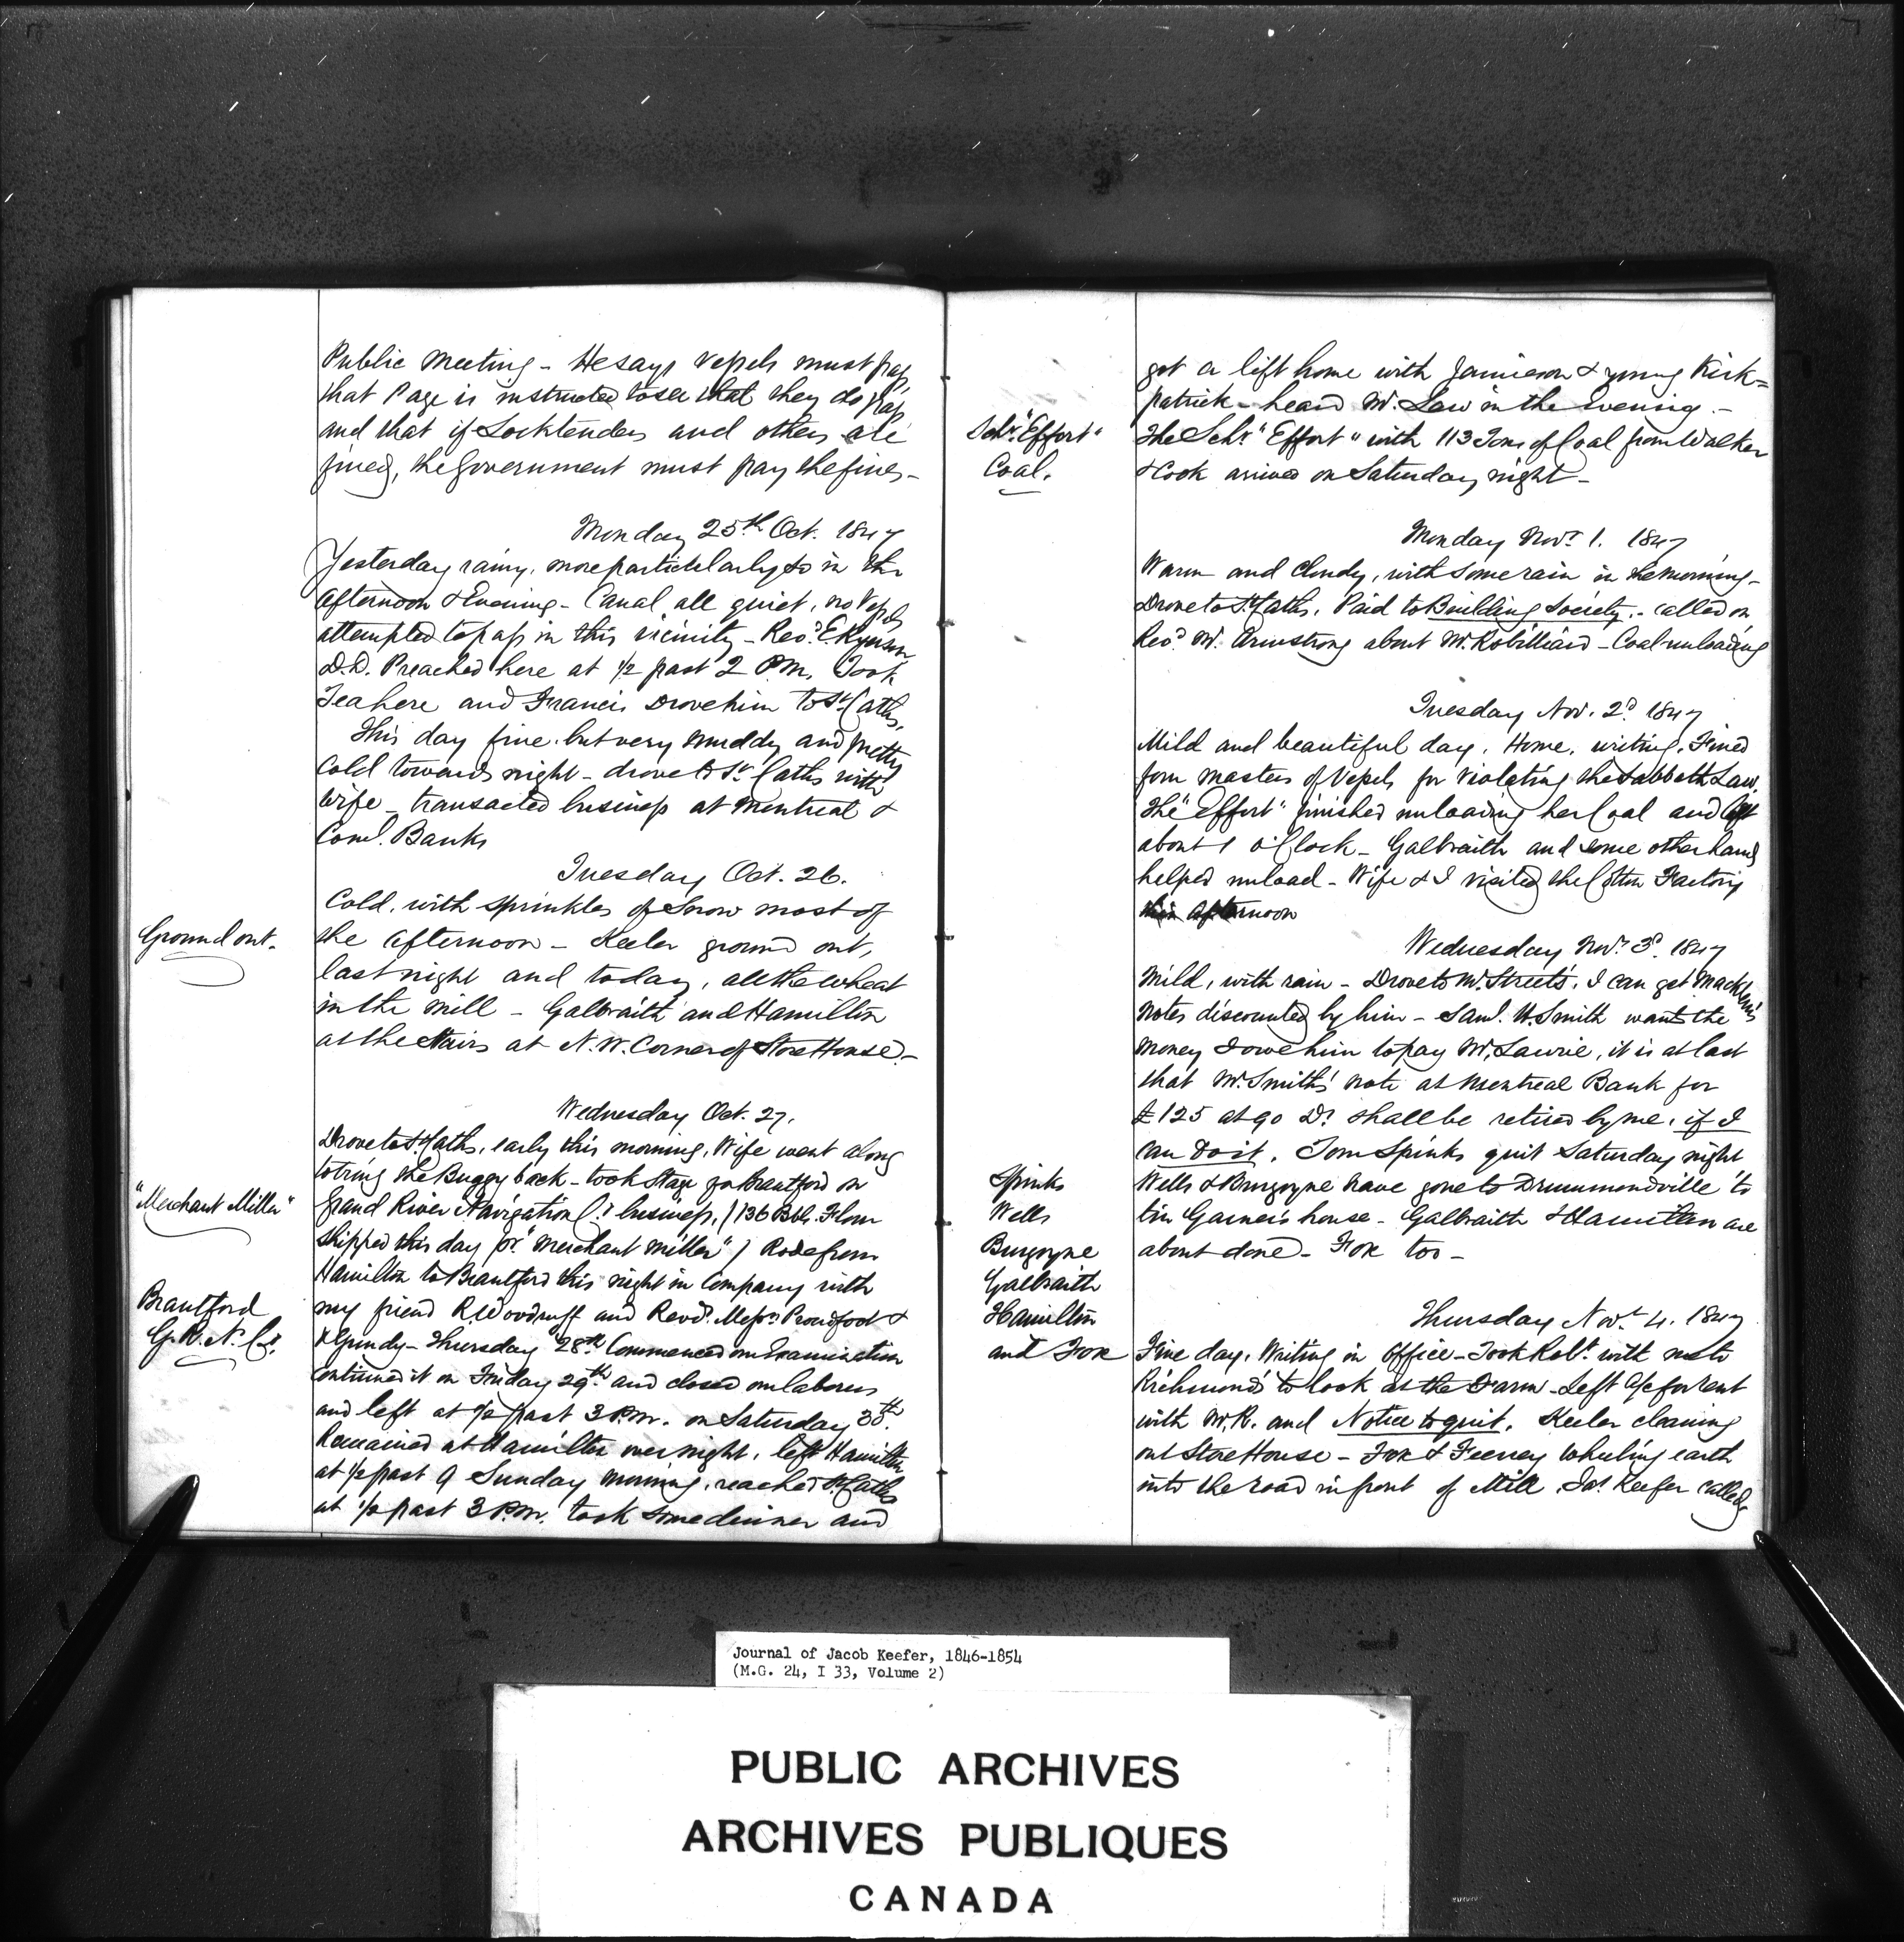 Public Meeting - He says Vessels must pass,
that Page is instructed to see that they do pass
and that if Locktenders and others are
fined, the Government must pay the fines -
Monday 25th Oct. 1847
Yesterday rainy, more particularly so in the
afternoon & Evening - Canal all quiet, no Vessels
attempted to pass in this vicinity - Revd. E Ryerson
D.D. Preached here at 1/2 past 2 P.M. Took
Tea here and Francis Drove him to St. Caths.
This day fine but very muddy and pretty
Cold towards night - drove to St. Caths with
Wife - transacted business at Montreal &
Coml. Banks
Tuesday Oct. 26.
Cold, with sprinkles of Snow most of
Ground out.
the afternoon - Keeler ground out,
last night and today, all the wheat
in the Mill - Galbraith and Hamilton
at the stairs at N.W. Corner of Store House -
Wednesday Oct. 27.
Drove to St. Caths, early this morning, Wife went along
to bring the Buggy back - took Stage for Brantford on
"Merchant Miller"
Grand River Navigation Co. business, / 136 Bbls. Flour
shipped this day pr. "Merchant Miller" / Rode from
Hamilton to Brantford this night in Company with
Brantford
G.R.N. Co.
my friend R. Woodruff and Revd. Messrs Proudfoot &
Thursday 28th Commenced our Examination
continued it on Friday 29th and closed our labours
and left at 1/2 past 3 P.M. on Saturday 30th.
Remained at Hamilton over night, left Hamilton
at 1/2 past 9 Sunday morning, reached St Caths
at 1/2 past 3 P.M. took some dinner and
got a lift home with Jamieson & young Kirk=
patrick - heard Mr. Law in the Evening. -
Schr. "Effort"
Coal.
The Schr. "Effort" with 113 Tons of Coal from Walker
& Cook arrived on Saturday night -
Monday Novr. 1. 1847
Warm and Cloudy, with some rain in the morning -
Drove to St. Caths. Paid to Building Society. - called on
Revd Mr. Armstrong about Mr. Robilliard - Coal unloading
Tuesday Nov. 2d. 1847
Mild and beautiful day. Home, writing. Fined
four masters of Vessels for violating the Sabbath Law.
The "Effort" finished unloading her Coal and left
about 1 o'Clock - Galbraith and some other hands
helped unload - Wife & I visited the Cotton Factory
this afternoon
Wednesday Novr. 3d. 1847
Mild, with rain - Drove to Mr. Street's. I can get Macklem's
notes discounted by him - Saml. H. Smith wants the
money I owe him to pay Mr. Lawrie, it is at last
that Mr. Smith's note at Montreal Bank for
£125 at 90 Ds. shall be retired by me, if I
can do it. Tom Spinks quit Saturday night
Spinks
Wells
Burgoyne
Galbraith
Hamilton
and Fox
Wells & Burgoyne have gone to Drummondville to
tin Garner's house - Galbraith & Hamilton are
about done - Fox too -
Thursday Novr. 4. 1847
Fine day. Writing in office - Took Robt. with me to
Richmond's to look at the Farm - Left a/c for rent
with Mr. R. and Notice to quit. Keeler cleaning
out Store House - Fox & Feeney wheeling earth
into the road in front of Mill. Jas. Keefer called
Journal of Jacob Keefer, 1846-1854
(M.G. 24, I 33, Volume 2)
PUBLIC ARCHIVES
ARCHIVES PUBLIQUES
CANADA